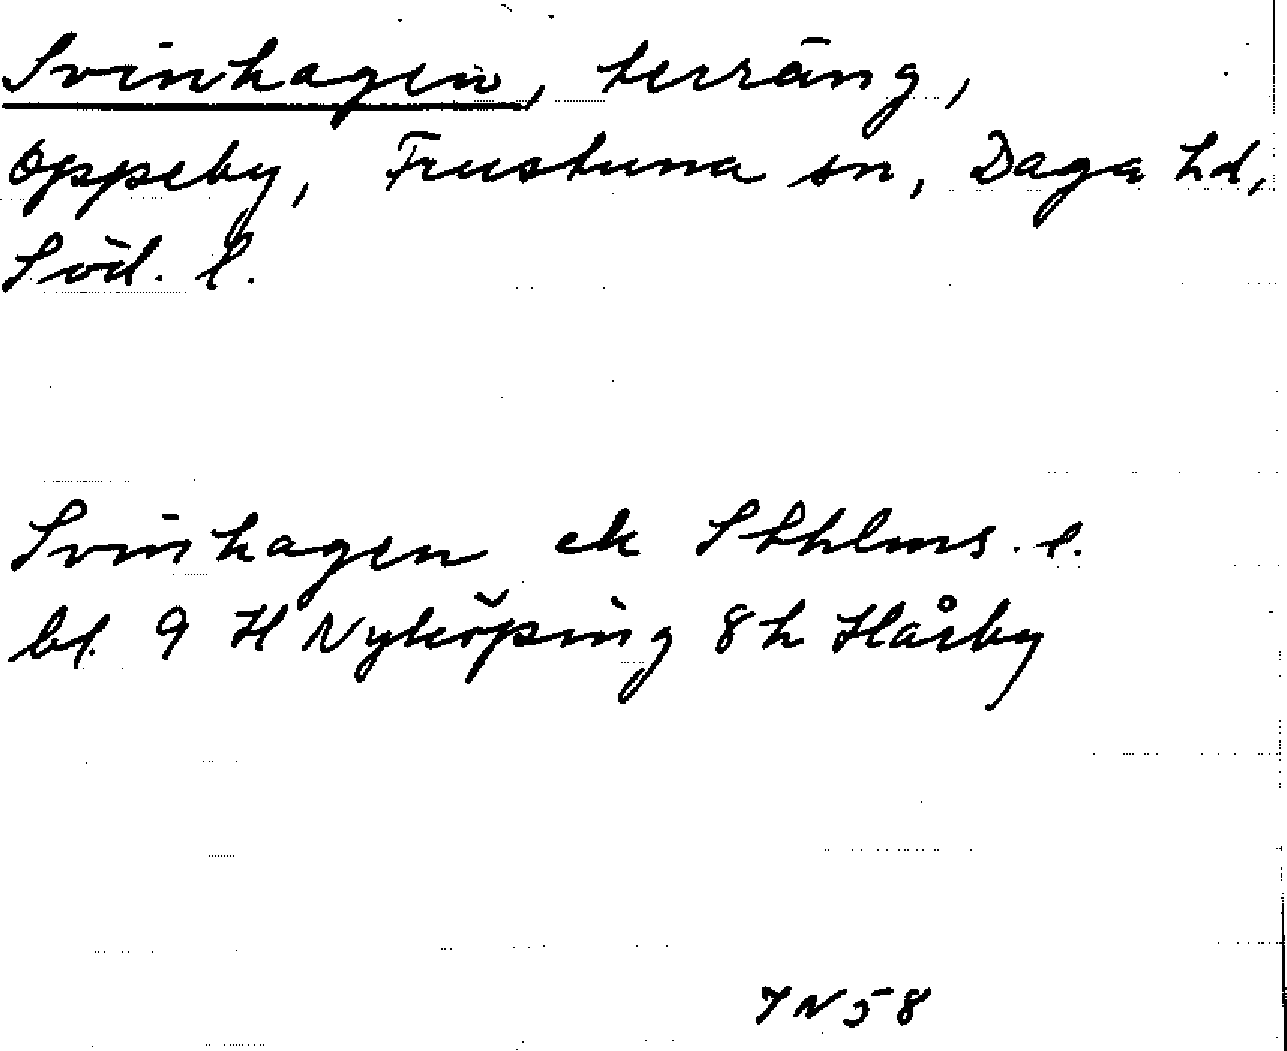 Svinhagen, terräng,
Oppeby, Frustuna sn, Daga hd,
Söd. l.
Svinhagen ek Sthlms. l.
bl. 9 H Nyköping 8h Hårby
7N58